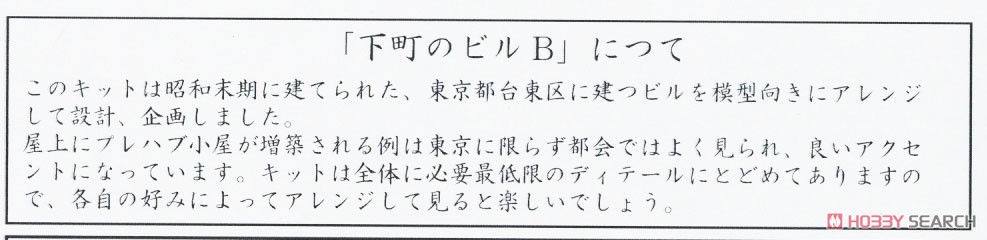 「下町のビルB」につて
このキットは昭和末期に建てられた、東京都台東区に建つビルを模型向きにアレンジ
して設計、企画しました。
屋上にプレハブ小屋が増築される例は東京に限らず都会ではよく見られ、良いアクセ
ントになっています。キットは全体に必要最低限のディテールにとどめてありますの
で、各自の好みによってアレンジして見ると楽しいでしょう。
HOBBY SEARCH